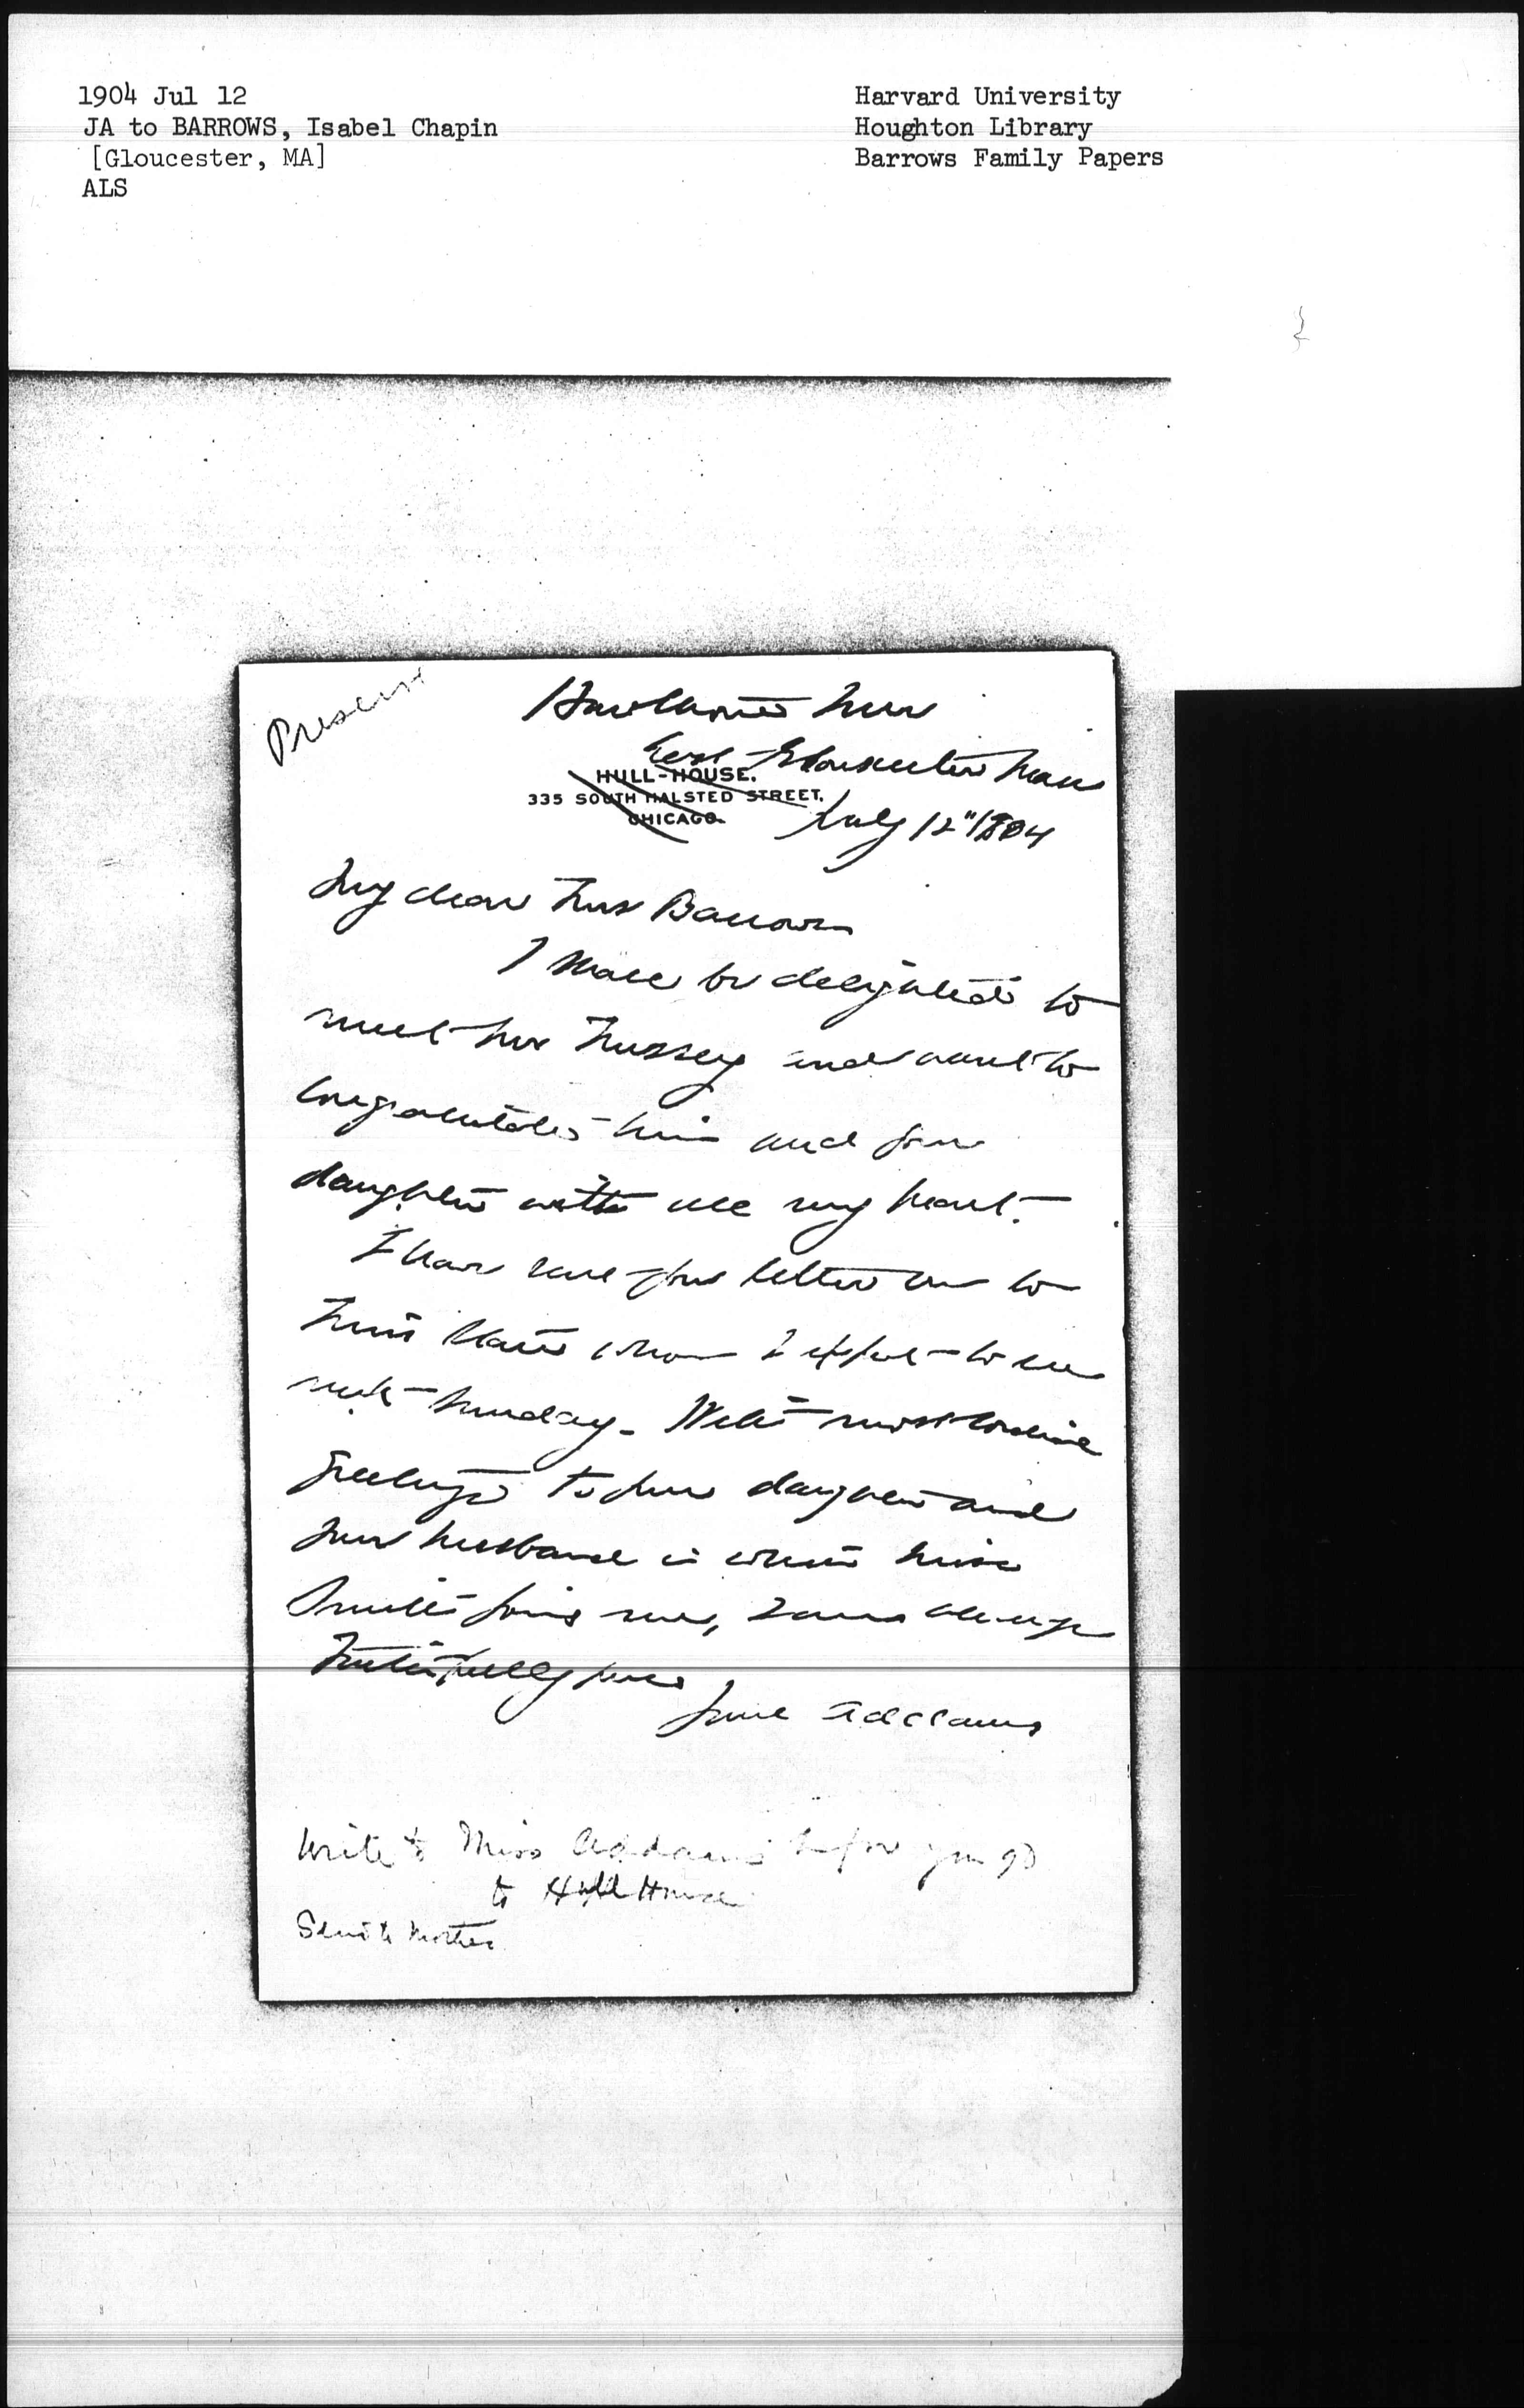 1904 Jul 12
JA to BARROWS, Isabel Chapin
[Gloucester, MA]
ALS
Harvard University
Houghton Library
Barrows Family Papers
Hawthorne Inn
East Gloucester Mass
HULL-HOUSE.
335 SOUTH HALSTED STREET,
CHICAGO.
July 12" 1904
My dear Mrs Barrows
I shall be delighted to
meet Mr Mussey and want to
congratulate him and your
daughter with all my heart.
I have sent your letter on to
Miss whom I expect to see
next Sunday. With most cordial
greetings to your daughter and
your husband in which Miss
Smith joins me, I am always
faithfully yours
Jane Addams
Write to Miss Addams before you go
to Hull House
Send to Mother